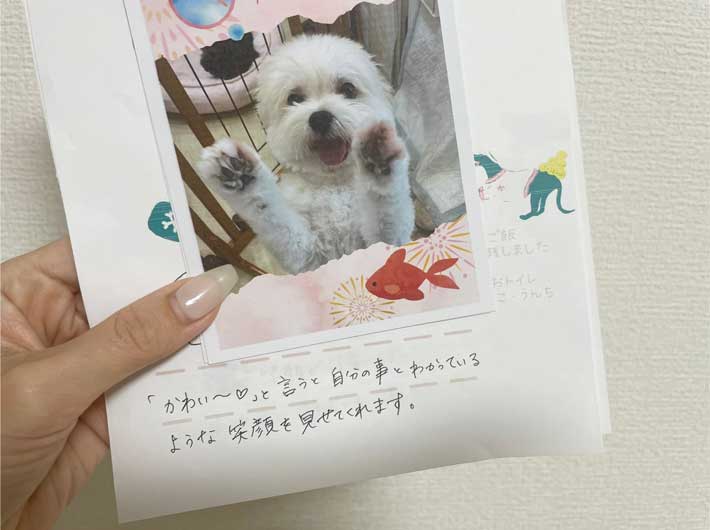 ご飯
残しました
おトイレ
こ・うんち
「かわい〜♡」と言うと自分の事とわかっている
ような笑顔を見せてくれます。